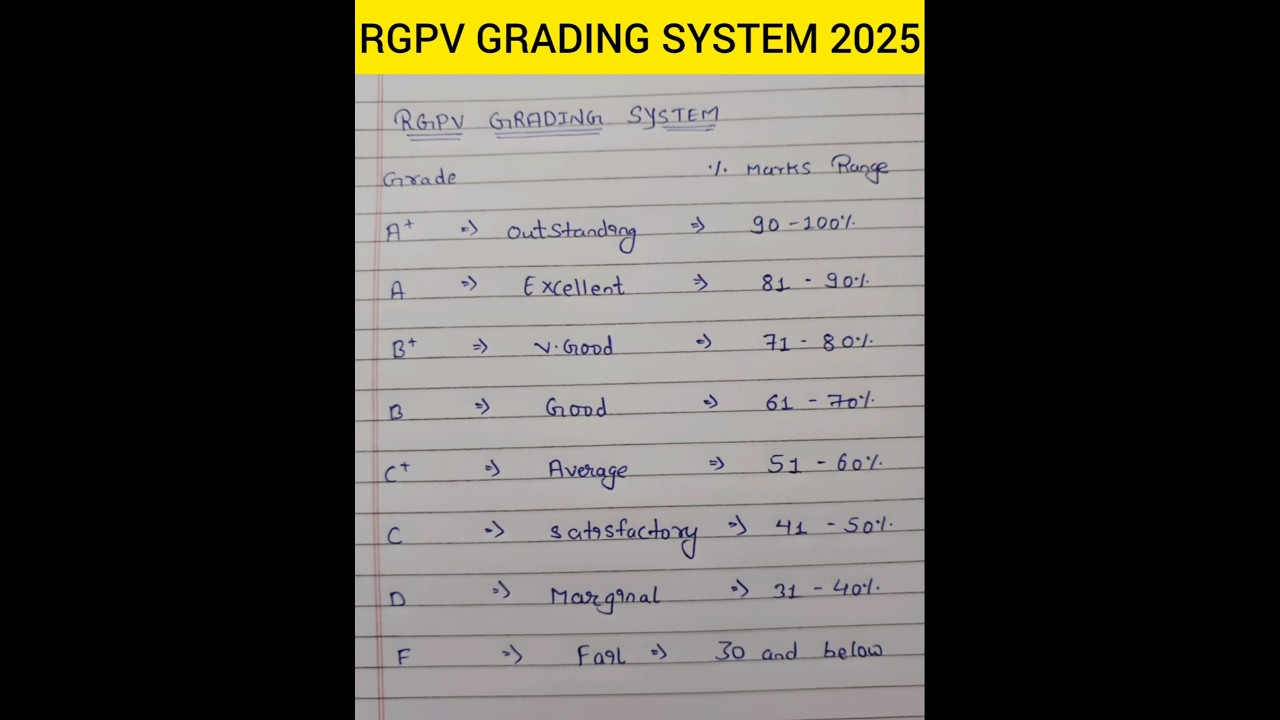 RGPV GRADING SYSTEM 2025
RGPV GRADING SYSTEM
Grade % Marks Range
A+ => Outstanding => 90 - 100%
A => Excellent => 81 - 90%
B+ => V.Good => 71 - 80%
B => Good => 61 - 70%
C+ => Average => 51 - 60%
C => Satisfactory => 41 - 50%
D => Marginal => 31 - 40%
F => Fail => 30 and below